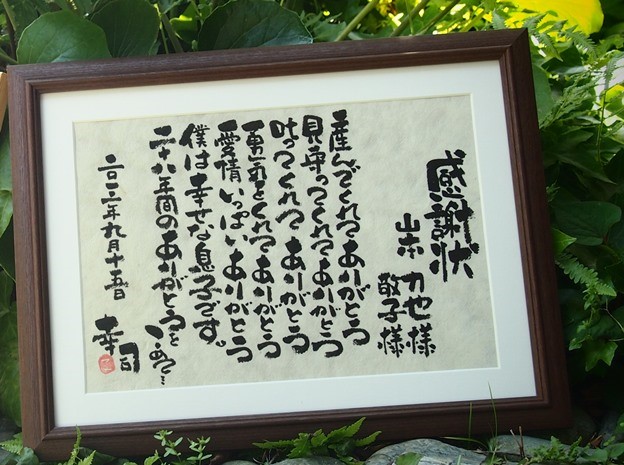 感謝状
山本 力也様
敬子様
産んでくれてありがとう
見守ってくれてありがとう
叱ってくれてありがとう
勇気をくれてありがとう
愛情いっぱいありがとう
僕は幸せな息子です。
二十八年間のありがとうをこめて…
二〇一二年九月十五日
幸司